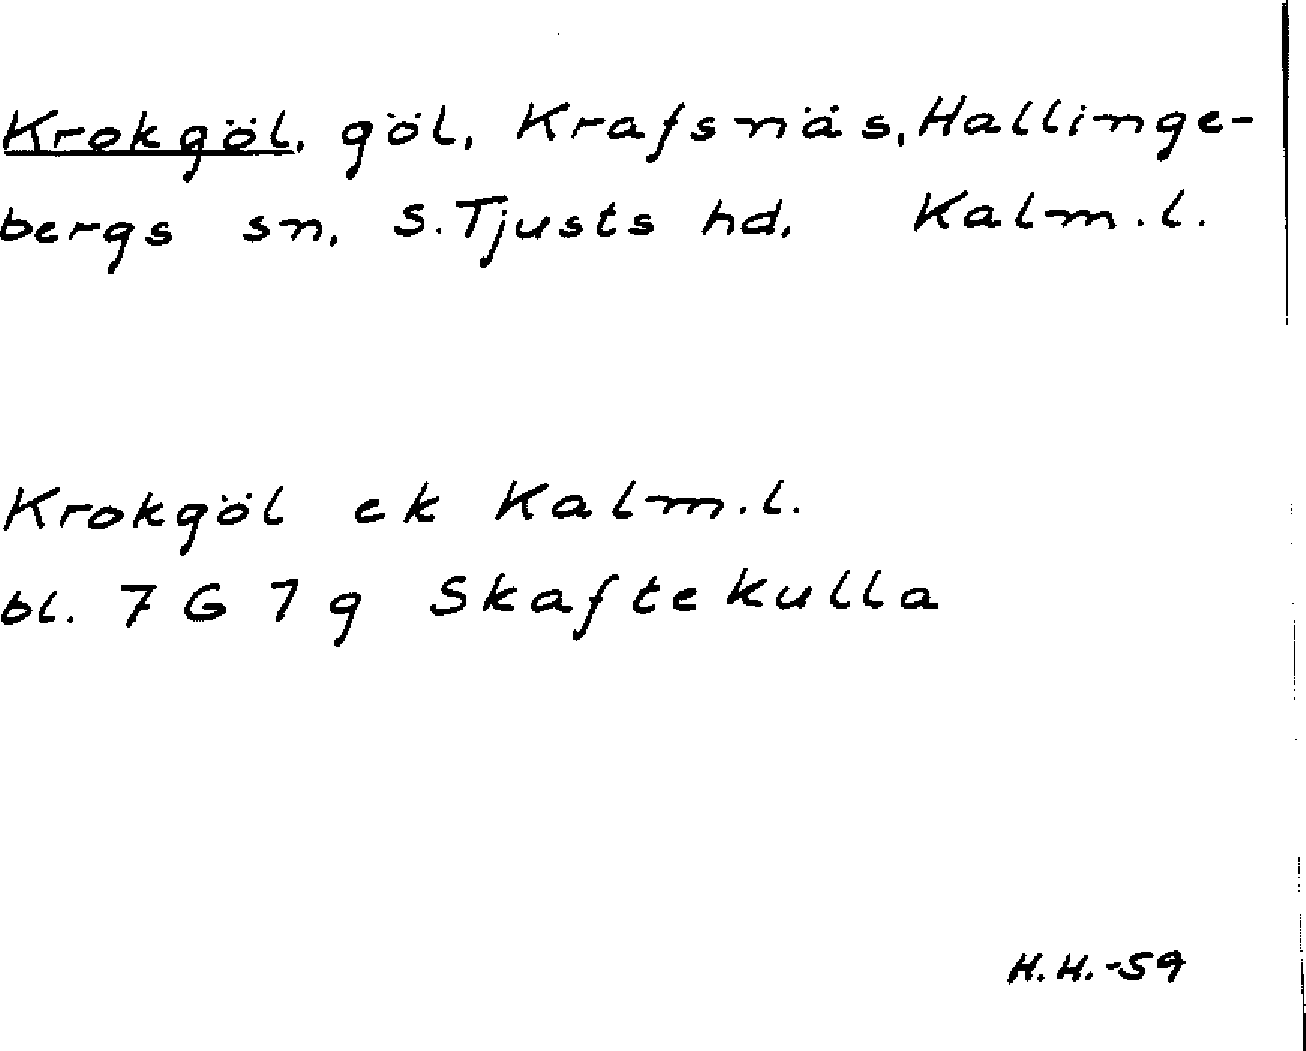 Krokgöl, göl, Krafsnäs, Hallinge-
bergs sn, S. Tjusts hd, Kalm. l.
Krokgöl ek Kalm. l.
bl. 7 G 7 g Skaftekulla
H. H. -59